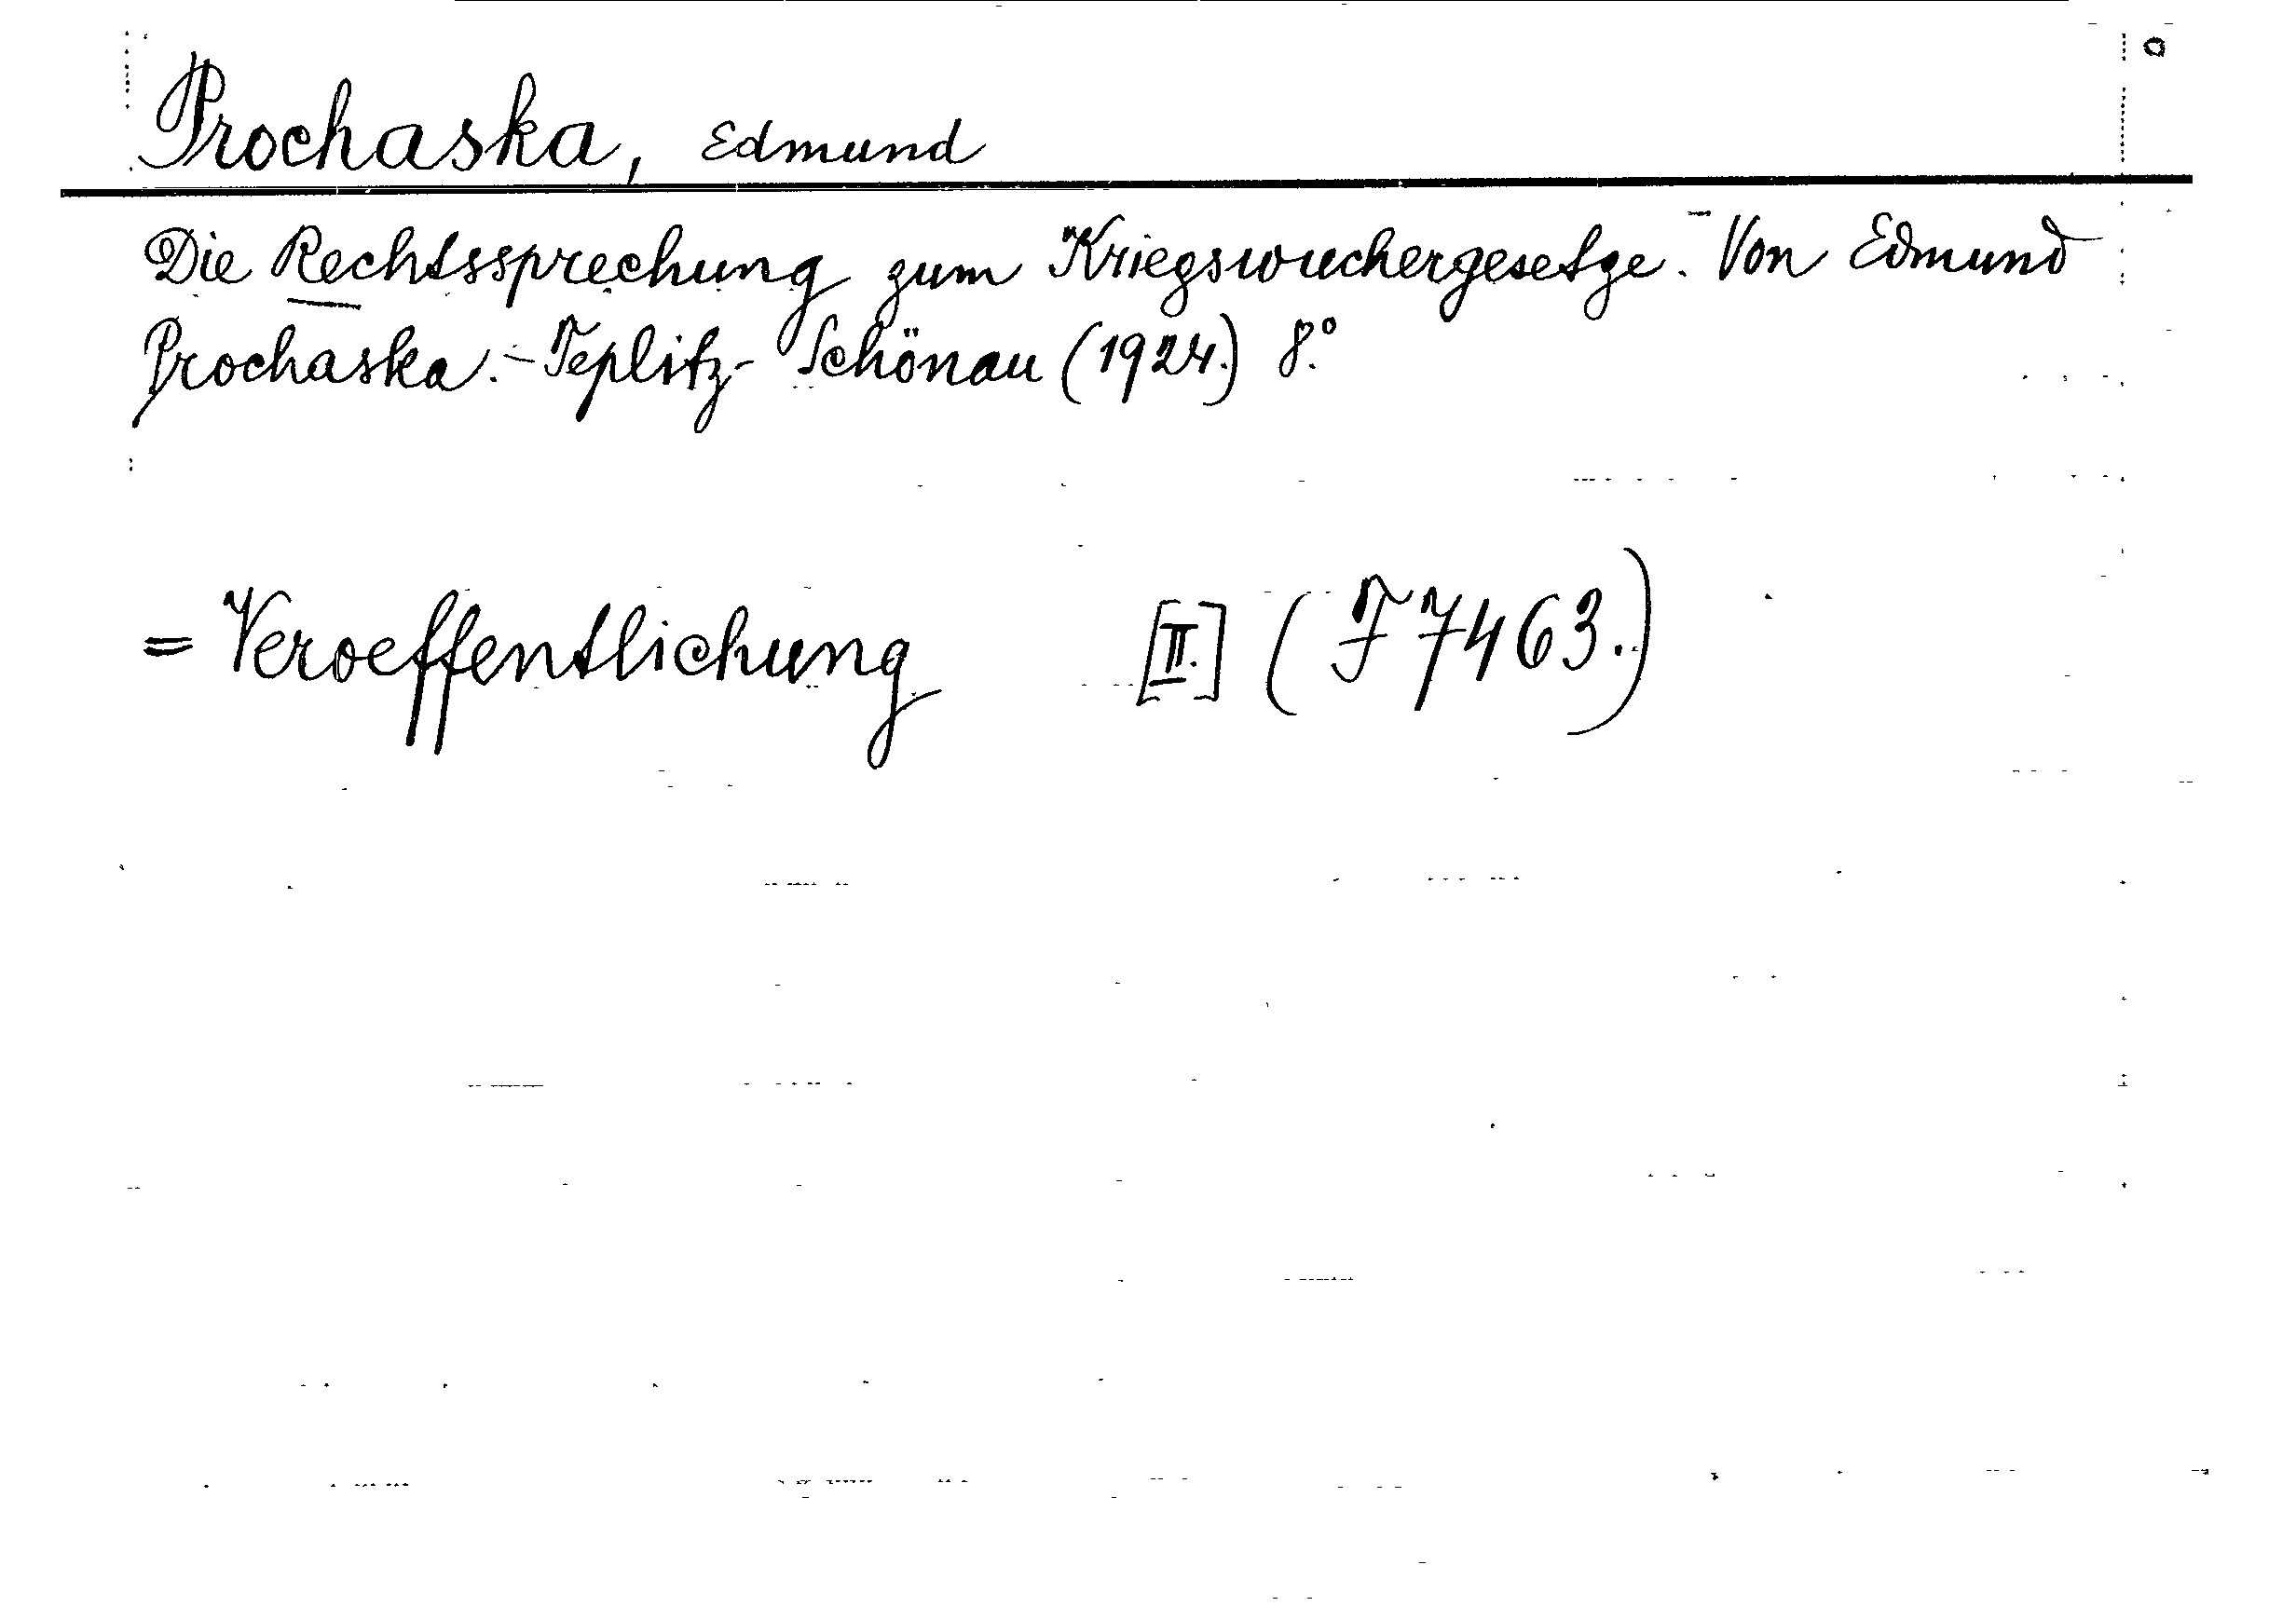 Prochaska, Edmund
Die Rechtssprechung zum Kriegswuchergesetze. - Von Edmund
Prochaska. - Teplitz-Schönau (1924.) 8.°
= Veroeffentlichung [II.] (F 7463.)